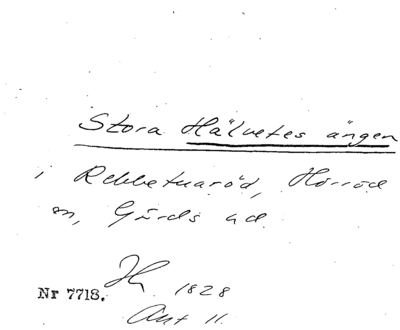 Stora Hälvetes ängen
i Rebbetuaröd, Hörröd
sn, Gärds hd.
Hy 1828
Nr 7718.
Akt 11.